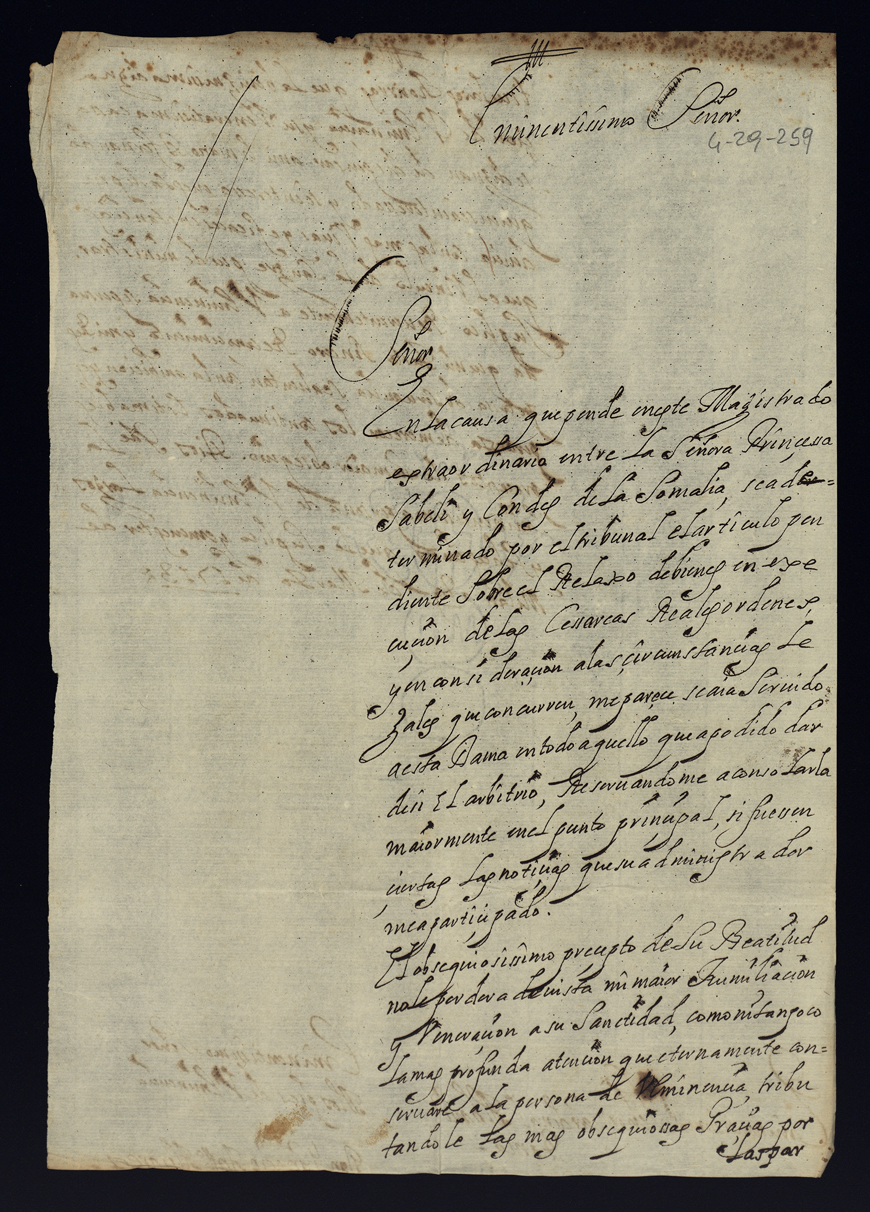 Eminentissimo Señor.
4-29-259
Señor
En la causa que pende en este Magistrado
extraordinario entre la Señora Princessa
Sabeli y Condes de la Somalia, sea de=
terminado por el tribunal el articulo pen
diente sobre el Relaxo de bienes en exe
cucion de las Cessareas Reales ordenes,
y en consideracion a las circunstancias le
gales que concurren, me parece seaia servido
a esta Dama en todo aquello que a podido dar
de si el arbitrio, Reservandome a consolarla
maiormente en el punto principal, si fuessen
ciertas las noticias que su administrador
me a participado.
El obsequiosissimo precepto de Su Beatitud
no le perdera de vista mi maior Humiliacion
y Veneracion a su Sanctidad, como ni tanpoco
la mas profunda atencion que eternamente con=
servare a la persona de VEminencia, tribu
tandole las mas obsequiossas Gracias por
las par